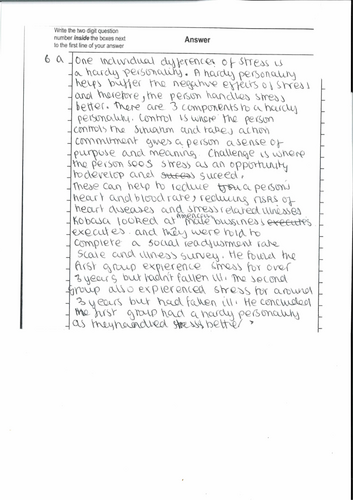 Write the two digit question
number inside the boxes next
to the first line of your answer
Answer
6 a One individual dyfferences of stress is
a hardy personality. A hardy personality
helps buffer the negative effects of stress
and therefore, the person handles stress
better. There are 3 components to a hardy
personality. Control is where the person
controls the situation and takes action
commitment gives a person a sense of
purpose and meaning. Challenge is where
the person sees stress as an opportunity
to develop and suceed.
These can help to reduce a persons
heart and blood rate, reducing risks of
heart diseases and stress related illnesses
Kobasa looked at American male business executes
executes. and they were told to
complete a social readjustment rate
scale and illness survey. He found the
first group expierence stress for over
3 years but hadn't fallen ill. The second
group also expierenced stress for around
3 years but had fallen ill. He concluded
the first group had a hardy personality
as they handled stress better